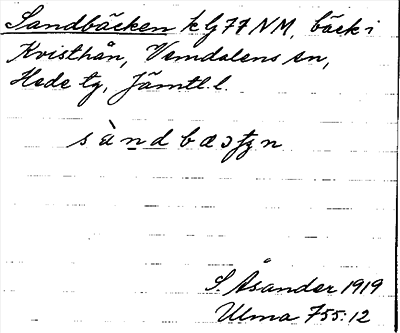 Sandbäcken k G 77 NM, bäck i
Kvisthån, Vemdalens sn,
Hede tg, Jämtl. l.
s à n d b æ
S. Åsander 1919
Ulma 755:12